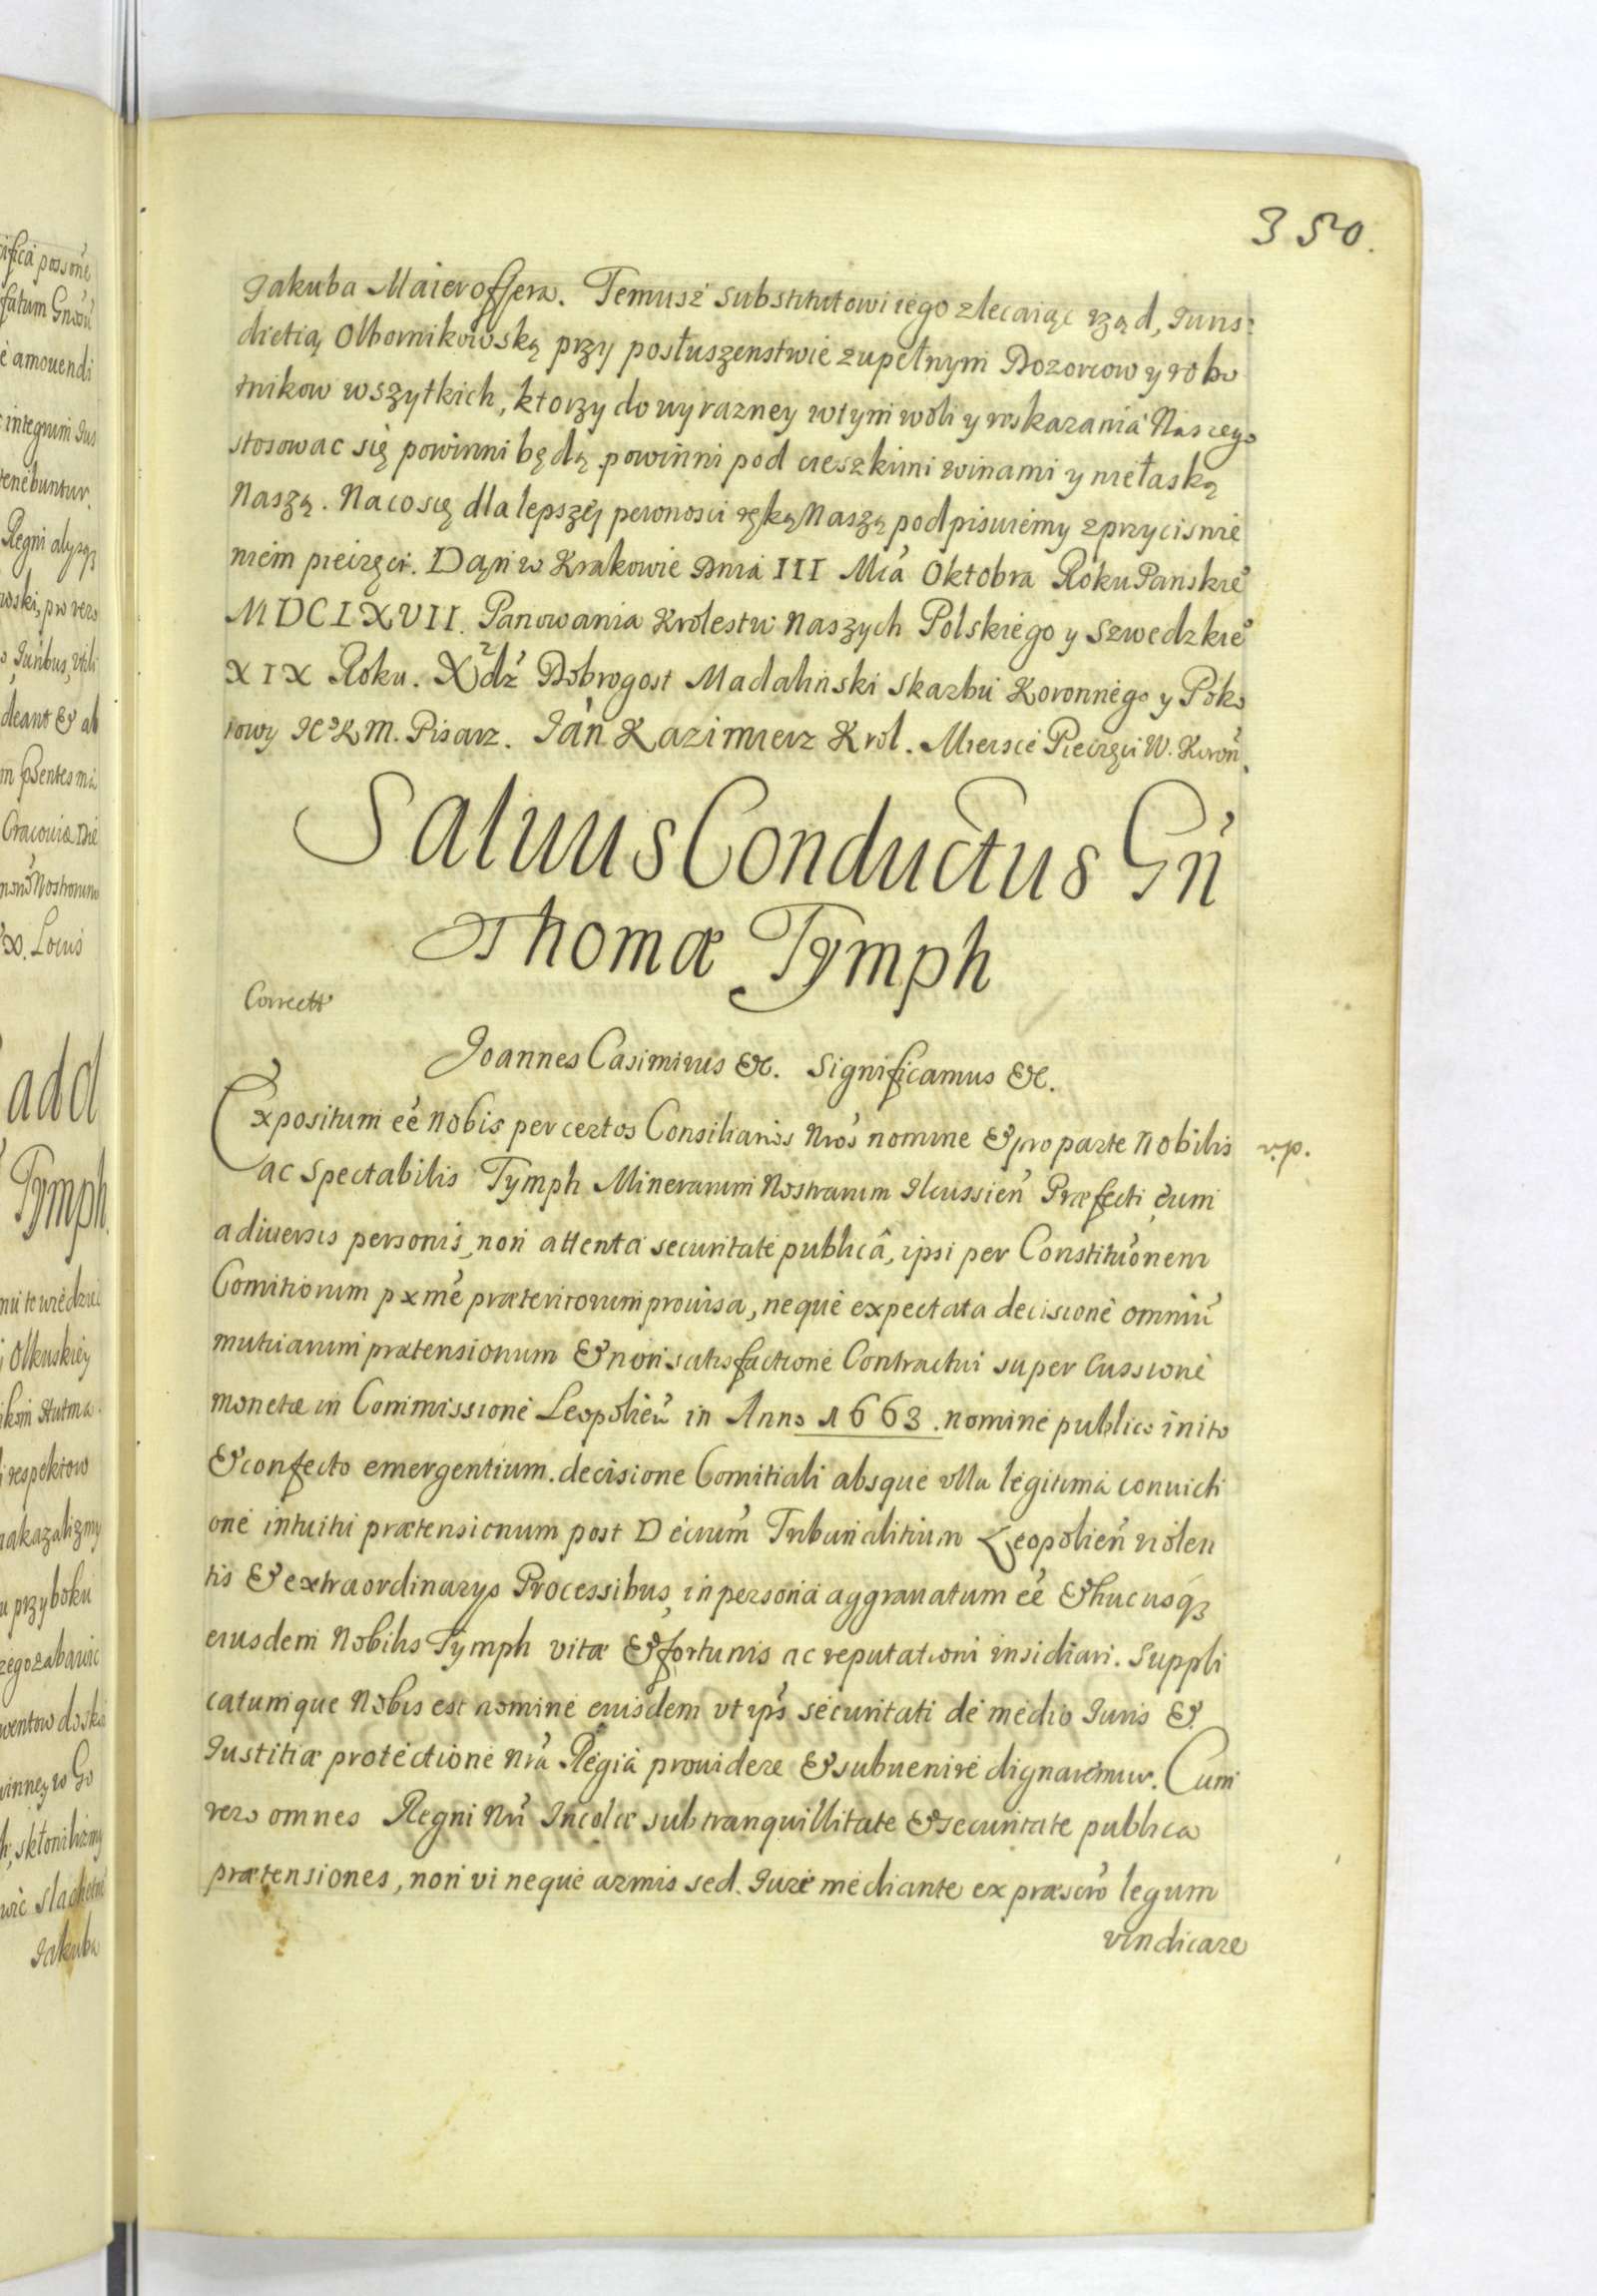 350.
Jakuba Maieroffera. Temusz substitutowi iego zlecaiąc rząd, Juris:
dictią Olbornikowską przy posłuszenstwie zupełnym Dozorcow y robo
tnikow wszytkich, ktorzy do wyrazney wtym woli y roskazania Naszego
stosowac się powinni będą powinni pod cieszkimi winami y niełaską
Naszą. Na co się dla lepszej pewnosci ręką Naszą podpisuiemy z przycisnie
niem pieczęci. Dąn w Krakowie Dnia III Mca Oktobra Roku Panskie°
MDCLXVII. Panowania Krolestw Naszych Polskiego y Szwedzkie°
XIX Roku. Xdz Dobrogost Madalinski Skarbu Koronnego y Poko
iowy JeKM. Pisarz. Jan Kazimierz Krol. Mieisce Pieczęci W. Koron.
Saluus Conductus Gn
Thomæ Tymph
Correct
Joannes Casimirus &c. Significamus &c.
Expositum eē Nobis per certos Consiliarios Nros nomine & pro parte Nobilis
v.p.
ac Spectabilis Tymph Minerarum Nostrarum Ilcussien Præfecti eum
a diuersis personis, non attenta securitate publicâ, ipsi per Constitūonem
Comitiorum pxme præteritorum prouisa, neque expectata decisione omniū
mutuarum prætensionum & non satisfactione Contractui super Cussione
monetæ in Commissione Leopolien in Anno 1663. nomine publico inito
& confecto emergentium. decisione Comitiali absque vlla legitima conuicti
one intuitu prætensionum post Decrum Tribunalitium Leopolien violen
tis & extraordinarys Processibus, in persona aggrauatum eē & hucusq3
eiusdem Nobilis Tymph vitæ & fortunis ac reputationi insidiari. Suppli
catumque Nobis est nomine eiusdem vt ips securitati de medio Juris &
Justitiæ protectione Nra Regia prouidere & subuenire dignaremur. Cum
vero omnes Regni Nri Incolæ sub tranquillitate & securitate publica
prætensiones, non vi neque armis sed. Jure mediante ex præscro legum
vindicare